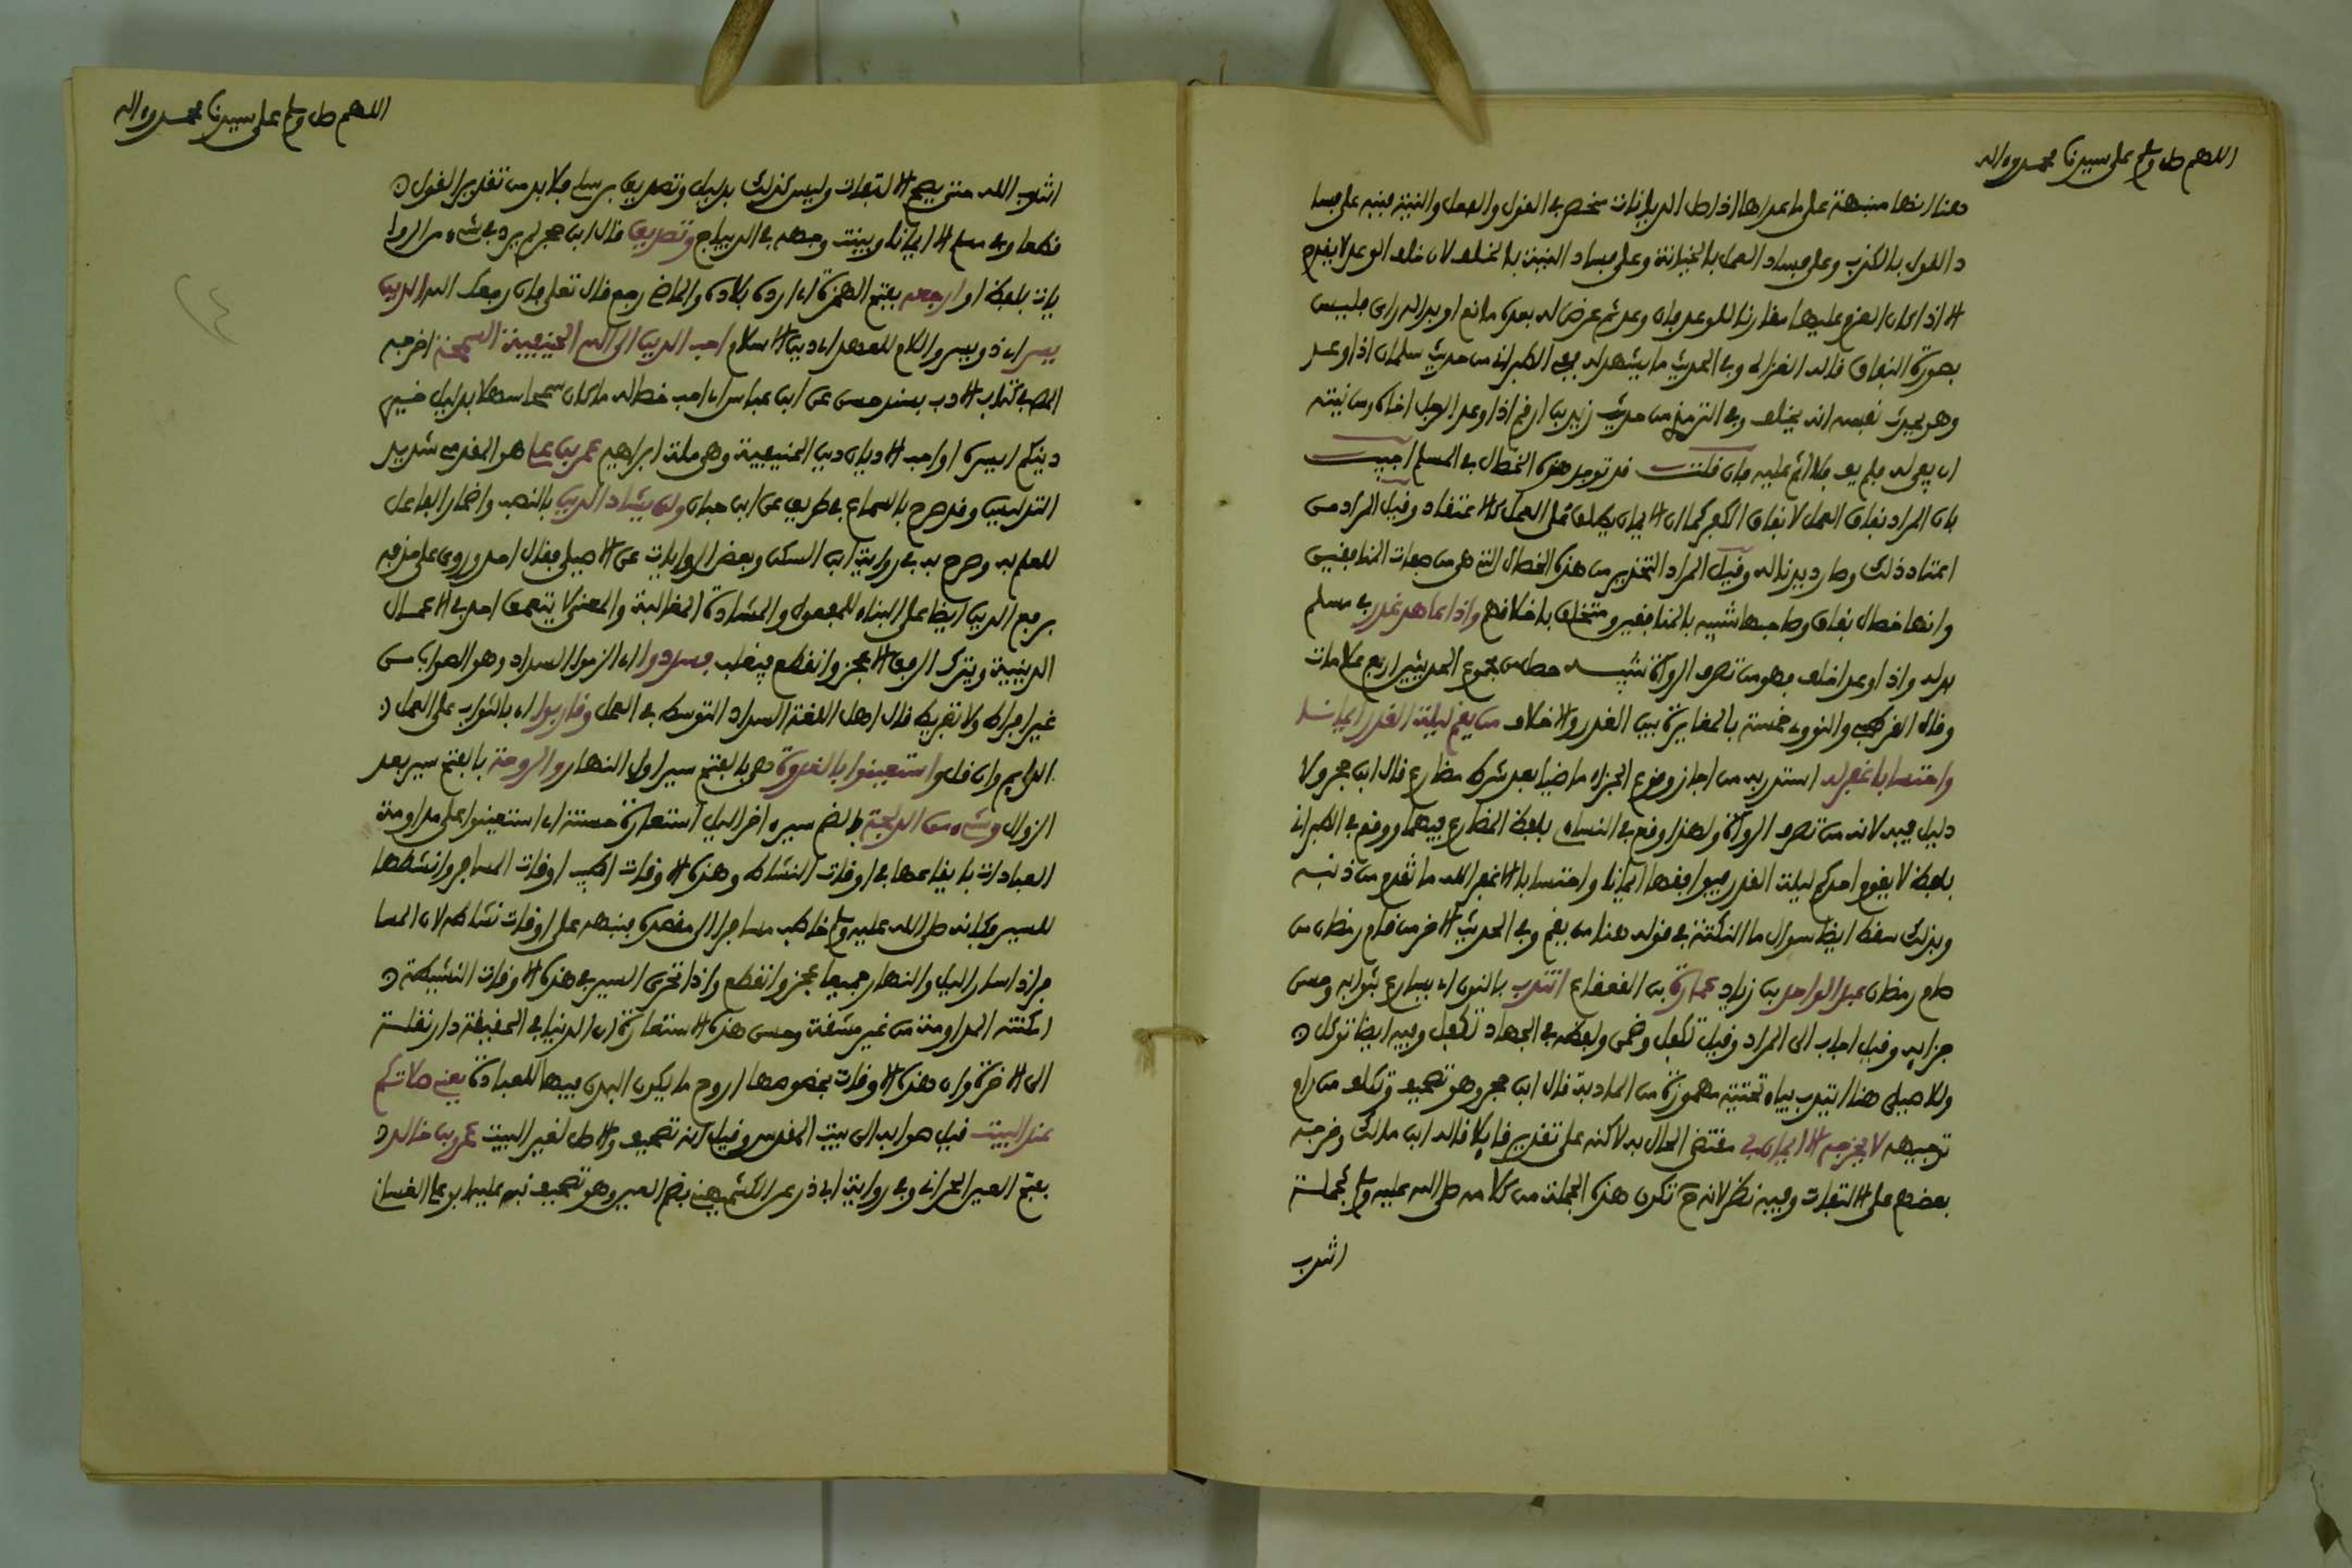 اللهم صل وسلم على سيدنا محمد وءاله
هنا انها منبهة على ما عداها اذ اصل الديانات منحصر في القول والفعل والنية فنبه على فسا
د القول بالكذب وعلى فساد الفعل بالخيانة وعلى فساد النية بالخلف لان خلف الوعد لا يقدح
الا اذا كان العزم عليها مقارنا للوعد فان وعد ثم عرض له بعده مانع او بدا له راى فليس
بصورة النفاق قاله الغزالي وفي الحديث ما يشهد له ففي الطبراني من حديث سلمان اذا وعد
وهو يحدث نفسه انه يخلف وفي الترمذي من حديث زيد بن ارقم اذا وعد الرجل اخاه ومن نيته
ان يفي له فلم يف فلا اثم عليه فان قلت قد توجد هذه الخصال في المسلم اجيب
بان المراد نفاق العمل لا نفاق الكفر كما ان الايمان يطلق على العمل كالاعتقاد وقيل المراد من
اعتاد ذلك وصار ديدنا له وقيل المراد التحذير من هذه الخصال التي هي من صفات المنافقين
وانها خصال نفاق وصاحبها شبيه بالمنافقين ومتخلق باخلاقهم واذا عاهد غدر في مسلم
بدله واذا وعد اخلف فهو من تصرف الرواة تنبيه حصل من مجموع الحديثين اربع علامات
وقال القرطبي والنووي خمسة بالمغايرة بين الغدر والاخلاف من يقم ليلة القدر ايمانا
واحتسابا غفر له استدل به من اجاز وقوع الجزاء ماضيا بعد شرط مضارع قال ابن حجر ولا
دليل فيه لانه من تصرف الرواة ولهذا وقع في النساءي بلفظ المضارع فيهما ووقع في الطبراني
بلفظ لا يقوم احدكم ليلة القدر فيوافقها ايمانا واحتسابا الا غفر الله ما تقدم من ذنبه
وبذلك سقط ايضا سوال ما النكتة في قوله هنا من يقم وفي الحديث الاخر من قام رمضان من
صام رمضان عبد الواحد بن زياد عمارة بن القعقاع انتدب بالنون اي يسارع بثوابه وحسن
جزايه وقيل اجاب الى المراد وقيل تكفل وضمن ولفظه في الجهاد تكفل وفيه ايضا توكل
وللاصيلي هنا ايتدب بياء تحتية مهموزة من المادبة قال ابن حجر وهو تصحيف وتكلف من رام
توجيهه لا يخرجه الا ايمان بي مقتضى الحال به لاكنه على تقدير قايلا قاله ابن مالك وخرجه
بعضهم على الالتفات وفيه نظر لانه ح تكون هذه الجملة من كلامه صلى الله عليه وسلم كجملة
انتدب
اللهم صل وسلم على سيدنا محمد وءاله
انتدب الله حتى يصح الالتفات وليس كذلك بدليل وتصديق برسلي فلا بد من تقدير القول
قطعا وفي مسلم الا ايمانا وبينت وجهه في الديباج وتصديق قال ابن حجر لم يرد في شيء من الروا
يات بلفظ او ارجعه بفتح الهمزة اي ارده بلاده والماضي رجع قال تعالى فان رجعك الله الدين
يسر اي ذو يسر واللام للعهد اي دين الاسلام احب الدين الى الله الحنيفية السمحة اخرجه
المص في كتاب الادب بسند حسن عن ابن عباس اي احب خصاله ما كان سمحا سهلا بدليل خير
دينكم ايسره او احب الاديان دين الحنيفية وهي ملة ابراهيم عمر بن علي هو المقدمي شديد
التدليس وقد صرح بالسماع في طريق عن ابن حبان ولن يشاد الدين بالنصب واضمار الفاعل
للعلم به وصرح به في رواية ابن السكن وبعض الروايات عن الاصيلي فقال احد وروى على حذفه
برفع الدين ايضا على البناء للمفعول والمشادة المغالبة والمعنى لا يتعمق احد في الاعمال
الدينية ويترك الرفق الا عجز وانقطع فيغلب فسددوا اي الزموا السداد وهو الصواب من
غير افراط ولا تفريط قال اهل اللغة السداد التوسط في العمل وقاربوا اي بالثواب على العمل
الدايم وان قل واستعينوا بالغدوة هي بالفتح سير اول النهار والروحة بالفتح سير بعد
الزوال وشيء من الدلجة بالضم سير اخر الليل استعارة حسنة اي استعينوا على مداومة
العبادات بايقاعها في اوقات النشاط وهذه الاوقات اطيب اوقات المسافر وانشطها
للسير فكانه صلى الله عليه وسلم خاطب مسافرا الى مقصده فنبهه على اوقات نشاطه لان المسا
فر اذا سار الليل والنهار جميعا عجز وانقطع واذا تحرى السير في هذه الاوقات النشيطة
امكنته المداومة من غير مشقة وحسن هذه الاستعارة ان الدنيا في الحقيقة دار نقلة
الى الاخرة وان هذه الاوقات بخصوصها اروح ما يكون البدن فيها للعبادة يعني صلاتكم
عند البيت قيل صوابه الى بيت المقدس وقيل انه تصحيف والاصل لغير البيت عمرو بن خالد
بفتح العين الحراني وفي رواية ابي ذر عن الكشميهني بضم العين وهو تصحيف نبه عليه ابو علي الغساني